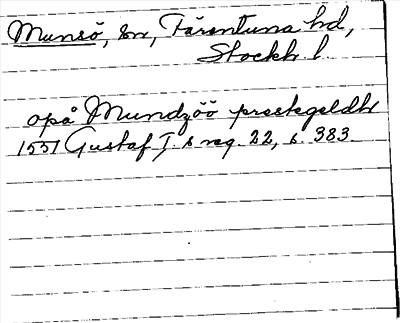 Munsö, sn, Färentuna hd,
Stockh. l.
opå Mundzöö prestegeldh
1551 Gustaf I:s reg. 22, s. 383.